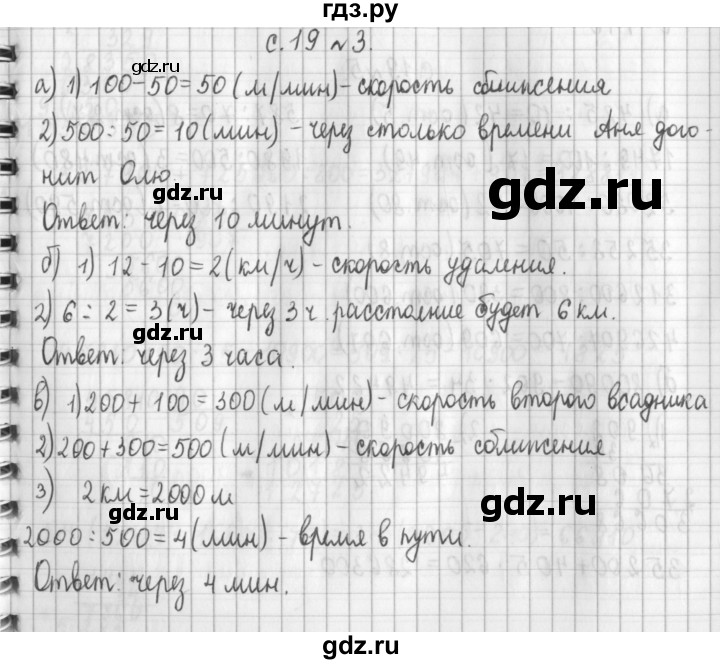 гдз.ру
с. 19 №3.
gdz.ru
а) 1) 100-50=50 (м/мин)-скорость сближения
2) 500:50=10 (мин) - через столько времени Аня дого-
нит Олю.
gdz.ru
gdz.ru
Ответ: через 10 минут.
б) 1) 12-10=2(км/ч)-скорость удаления.
gdz.ru
2) 6:2=3(ч)-через 3 ч. расстояние будет 6 км.
Ответ: через 3 часа.
gdz.ru
в) 1)200+100=300(м/мин)-скорость второго всадника
2)200+300=500 (м/мин)-скорость сближения
gdz.ru
3) 2 км=2000 м
gdz.ru
2000:500=4(мин)-время в пути.
Ответ: через 4 мин.
gdz.ru
gdz.ru